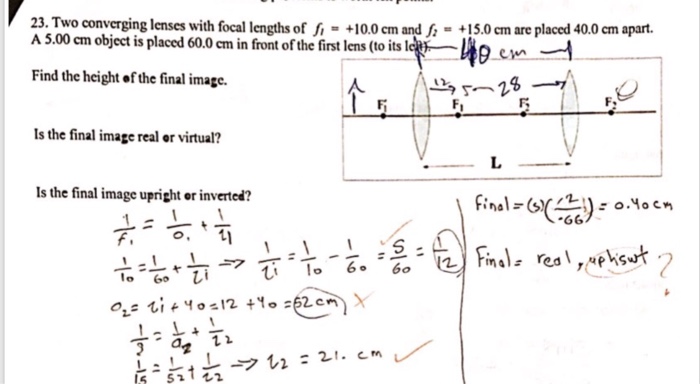 23. Two converging lenses with focal lengths of f₁ = +10.0 cm and f₂ = +15.0 cm are placed 40.0 cm apart.
A 5.00 cm object is placed 60.0 cm in front of the first lens (to its left).
40 cm
Find the height of the final image.
12 28
F₁ F₁ F₂ F₂
Is the final image real or virtual?
L
Is the final image upright or inverted?
1/f₁ = 1/o₁ + 1/i1
1/10 = 1/60 + 1/i => 1/i = 1/10 - 1/60 = 5/60 = 1/12
o₂ = i + 40 = 12 + 40 = 52 cm X
1/3 = 1/o₂ + 1/i2
1/15 = 1/52 + 1/i2 -> i2 = 21. cm ✓
Final = (5)() = 0.40 cm
Final = real, ?